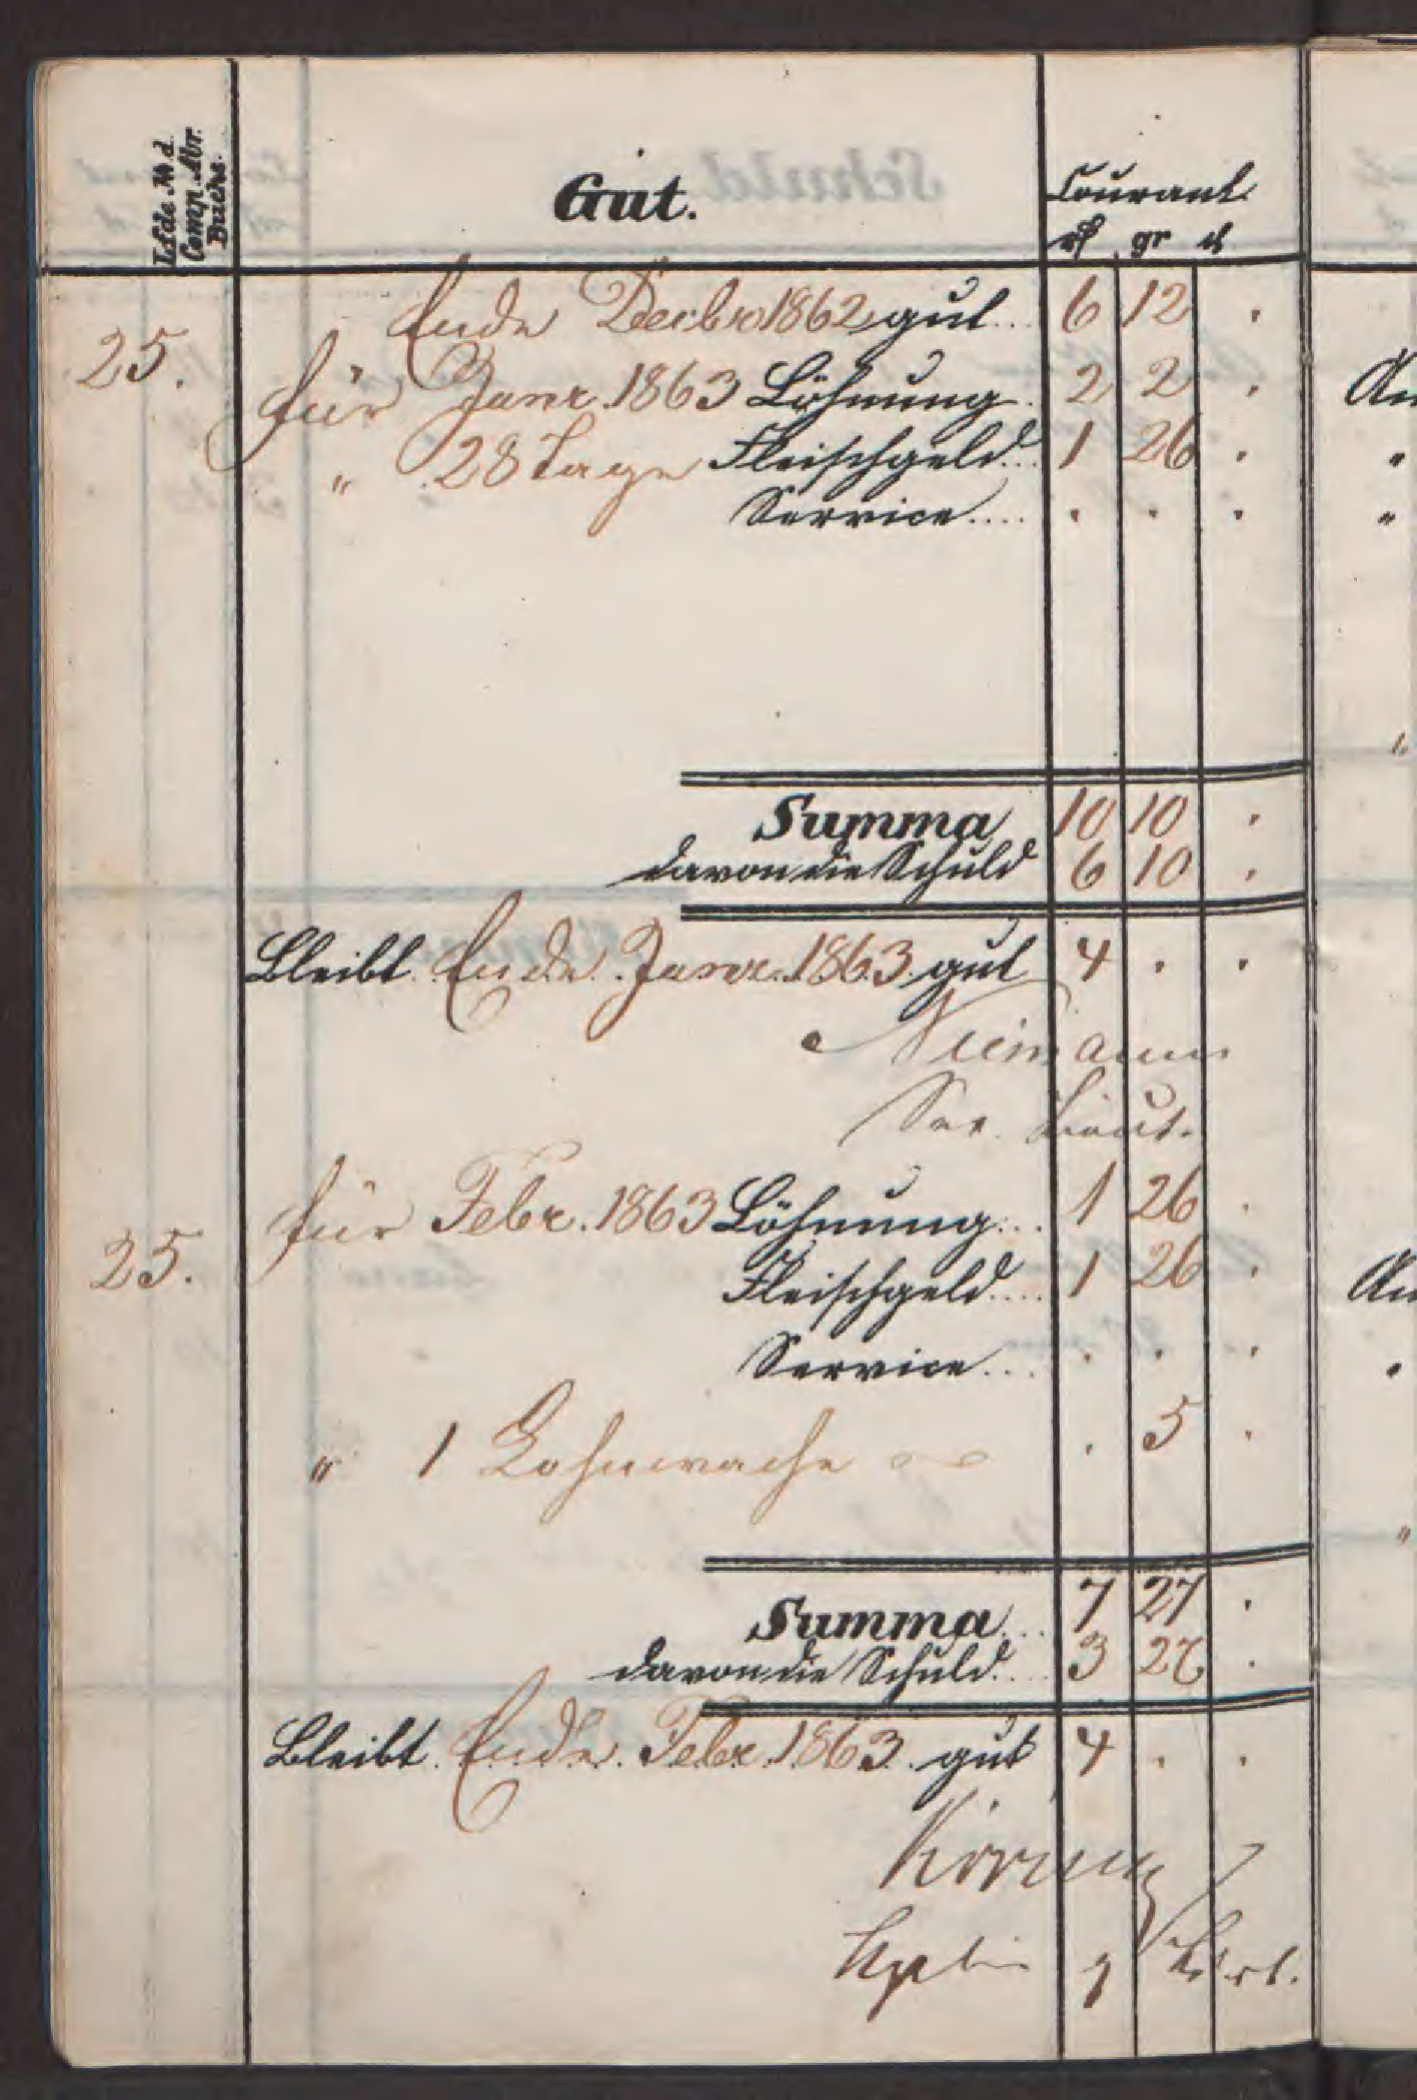 Lfde № d. Comp. Abr. Buchs.
Gut.
Courant
rℓ gr ₰
Ende Decbr 1862 gut... 6 12 .
25.
für Janr. 1863 Löhnung. 2 2 .
An
" 28 Tage Fleischgeld... 1 26 .
"
Service.... . . .
"
"
Summa 10 10 .
davon die Schuld 6 10 .
Bleibt Ende Janr. 1863 gut 4 . .
Niemann
Sec. Lieut.
für Febr. 1863 Löhnung... 1 26 .
25.
Fleischgeld.... 1 26 .
An
Service... . . .
" 1 Lohnwache . 5 .
"
Summa... 7 27 .
davon die Schuld.... 3 27 .
Bleibt Ende Febr. 1863 gut 4 . .